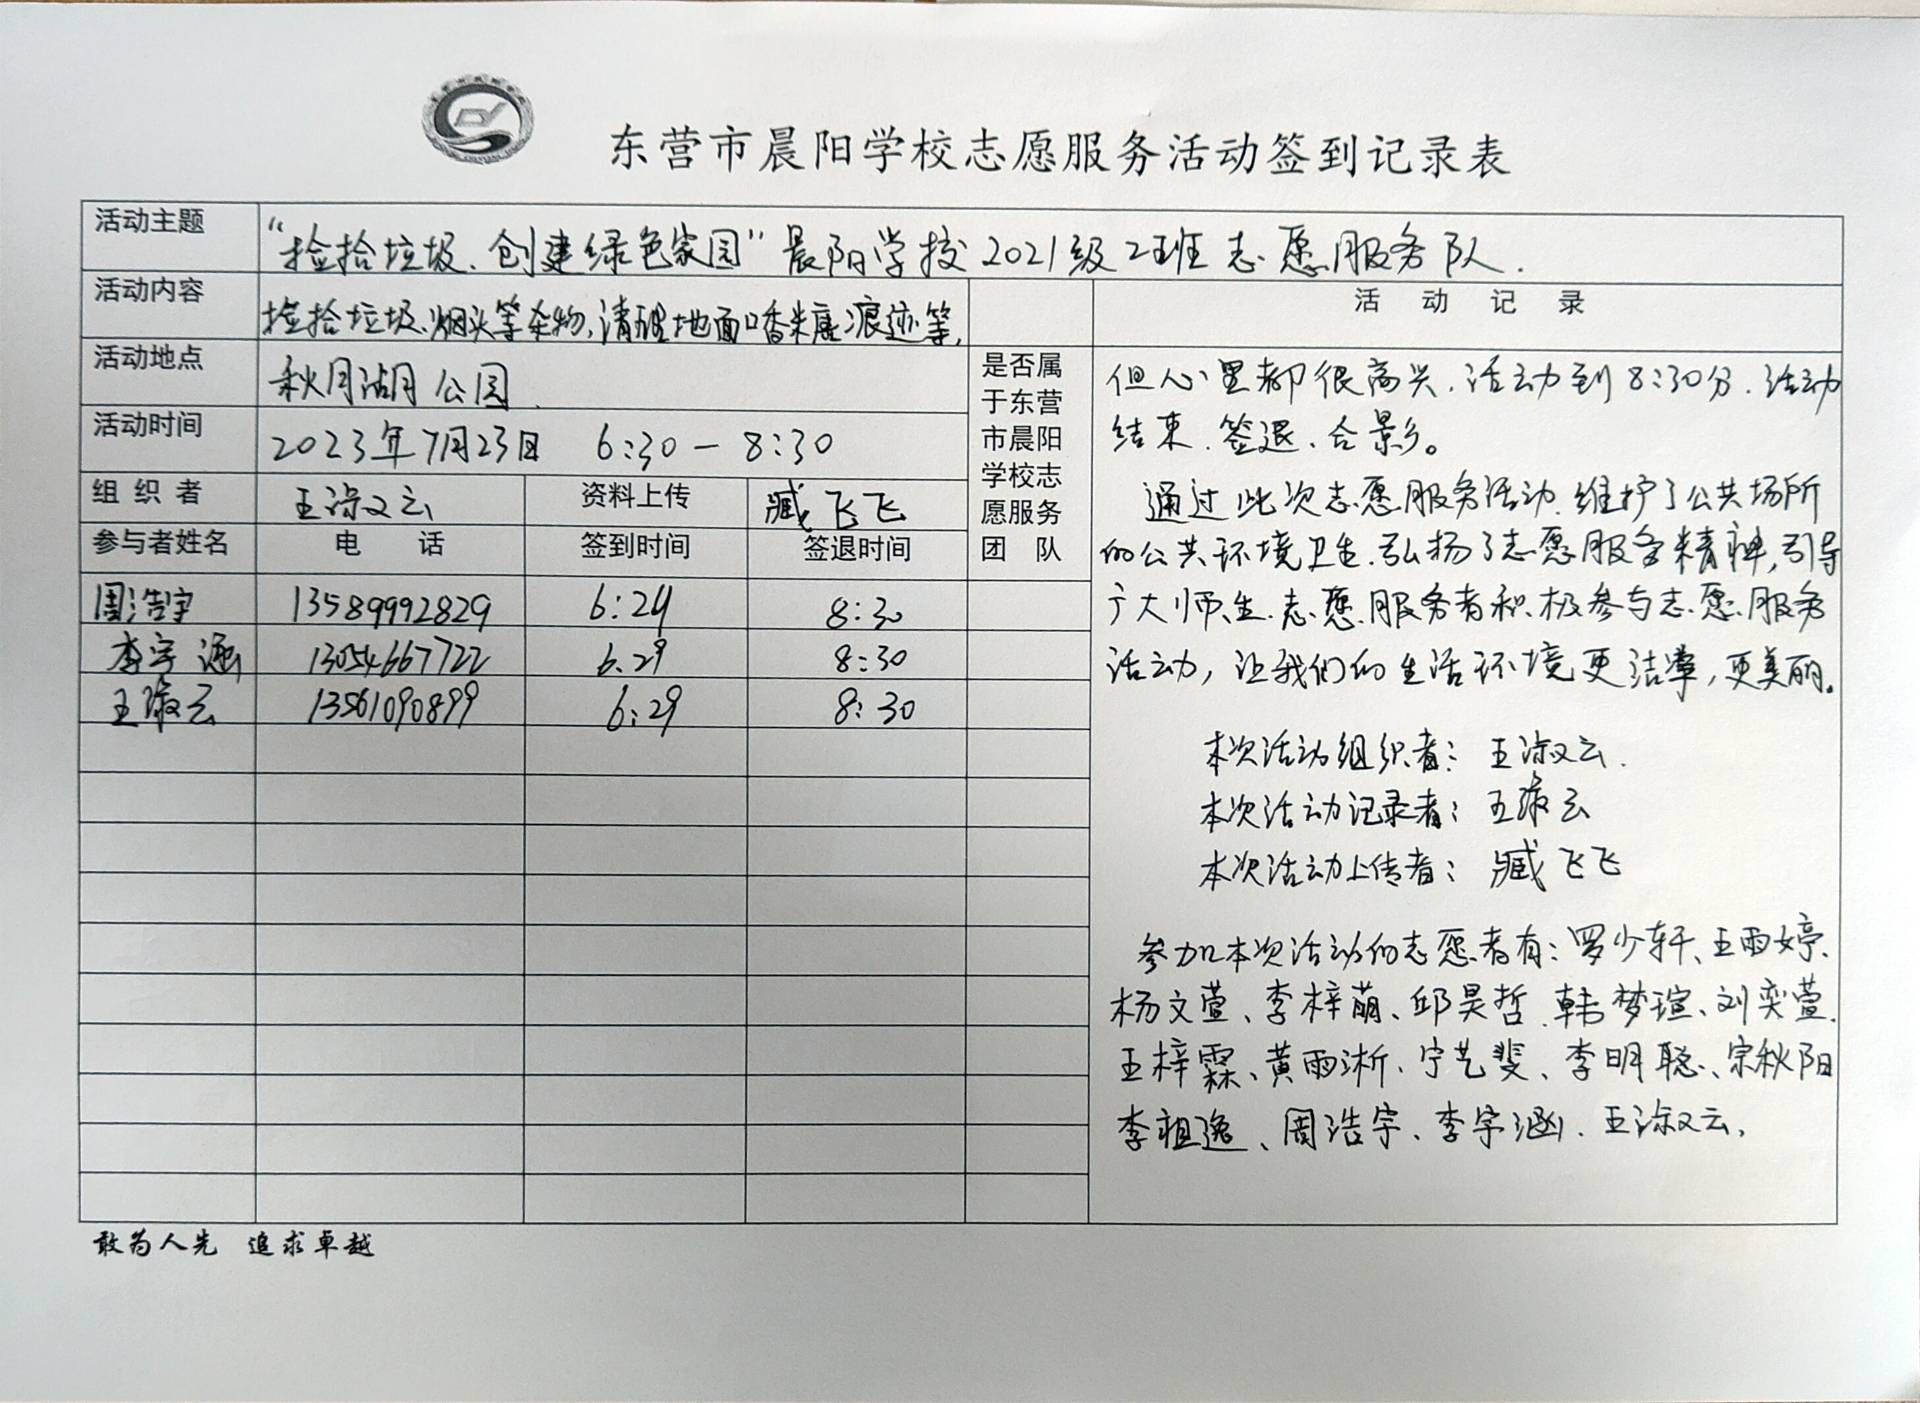 东营市晨阳学校志愿服务活动签到记录表
活动主题 “捡拾垃圾、创建绿色家园”晨阳学校2021级2班志愿服务队.
活动内容 捡拾垃圾、烟头等杂物,清理地面口香糖痕迹等,
活动地点 秋月湖公园
活动时间 2023年7月23日 6:30-8:30
组织者 王淑云 资料上传 臧飞飞
参与者姓名 电话 签到时间 签退时间
周浩宇 13589992829 6:24 8:30
李宇涵 13054667722 6.29 8:30
王淑云 13561090899 6:29 8:30
是否属
于东营
市晨阳
学校志
愿服务
团队
活动记录
但心里都很高兴.活动到8:30分.活动
结束.签退、合影。
通过此次志愿服务活动.维护了公共场所
的公共环境卫生.弘扬了志愿服务精神,引导
广大师生.志愿服务者积极参与志愿服务
活动,让我们的生活环境更洁净,更美丽。
本次活动组织者: 王淑云.
本次活动记录者: 王淑云
本次活动上传者: 臧飞飞
参加本次活动的志愿者有:罗少轩、王雨婷、
杨文萱、李梓萌、邱昊哲.韩梦瑄、刘奕萱.
王梓霖、黄雨淅、宁艺斐、李明聪、宗秋阳
李祖逸、周浩宇、李宇涵.王淑云,
敢为人先 追求卓越